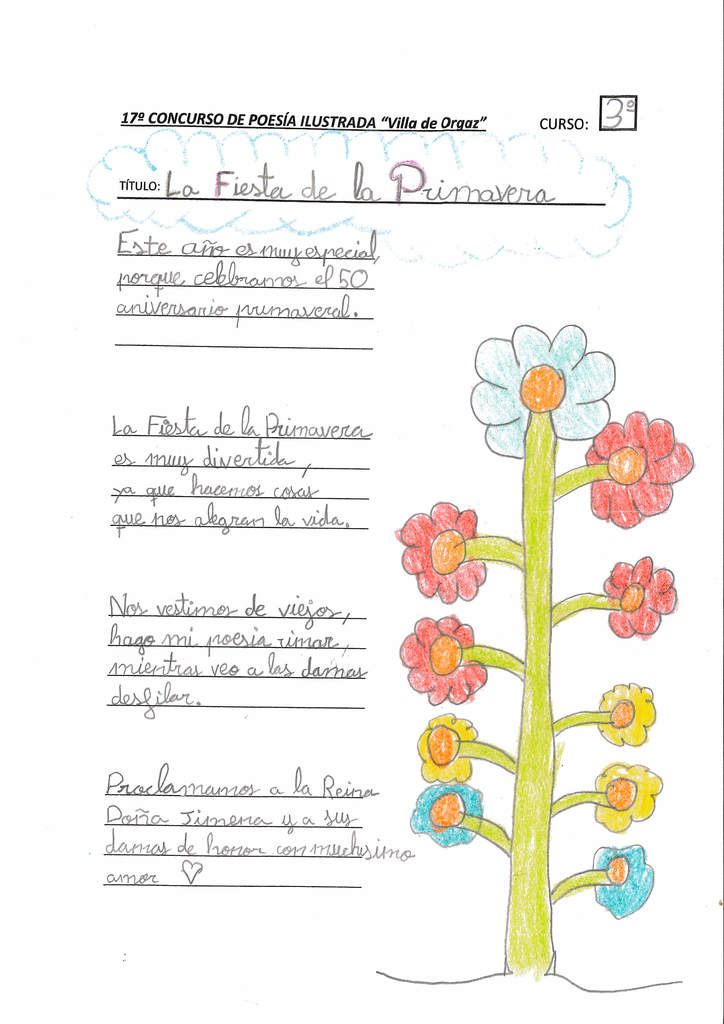 17º CONCURSO DE POESÍA ILUSTRADA “Villa de Orgaz” CURSO: 3º
TÍTULO: La Fiesta de la Primavera
Este año es muy especial,
porque celebramos el 50
aniversario primaveral.
La Fiesta de la Primavera
es muy divertida,
ya que hacemos cosas
que nos alegran la vida.
Nos vestimos de viejos,
hago mi poesía rimar,
mientras veo a las damas
desfilar.
Proclamamos a la Reina
Doña Jimena y a sus
damas de honor con muchisimo
amor ♡